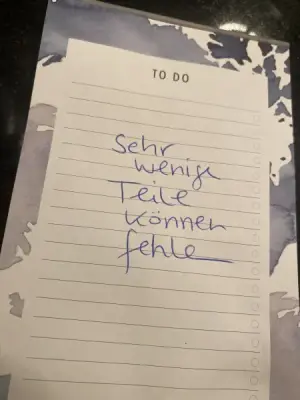 TO DO
Sehr
wenige
Teile
können
fehle